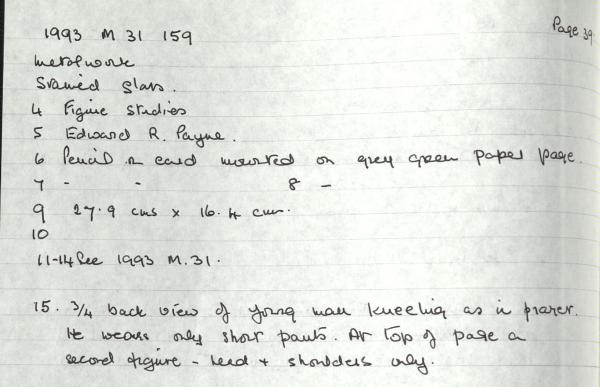 Page 39
1993 M 31 159
Metalwork
Stained glass.
4 Figure studies
5 Edward R. Payne.
6 Pencil on card mounted on grey green paper page.
7 - - 8 -
9 27.9 cms x 16.4 cms.
10
11-14 See 1993 M.31.
15. 3/4 back view of young man kneeling as in prayer.
He wears only short pants. At top of page a
second figure - head + shoulders only.